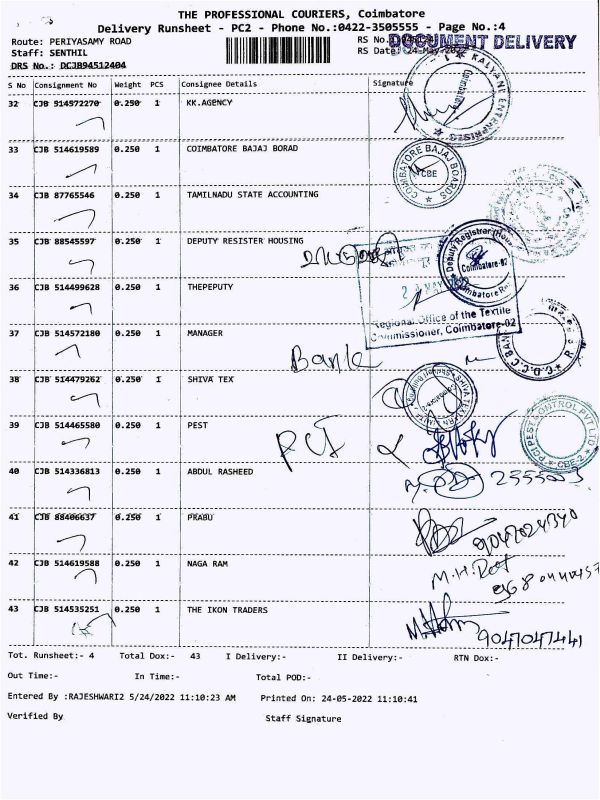 THE PROFESSIONAL COURIERS, Coimbatore
Delivery Runsheet - PC2 - Phone No.:0422-3505555 - Page No.:4
Route: PERIYASAMY ROAD
RS No.
DOCUMENT DELIVERY
Staff: SENTHIL
RS Date: 24-May-2022
DRS No.: DCJB94512404
S No Consignment No Weight PCS Consignee Details Signature
32 CJB 514572270 0.250 1 KK.AGENCY
KALYANI ENTERPRISES
33 CJB 514619589 0.250 1 COIMBATORE BAJAJ BORAD
COIMBATORE BAJAJ BOARDS
CBE
34 CJB 87765546 0.250 1 TAMILNADU STATE ACCOUNTING
35 CJB 88545597 0.250 1 DEPUTY RESISTER HOUSING
Deputy Registrar (Housing)
Coimbatore-02
36 CJB 514499628 0.250 1 THEPEPUTY
Regional Office of the Textile
Commissioner, Coimbatore-02
37 CJB 514572180 0.250 1 MANAGER
Bank
C.D.C.C BANK
38 CJB 514479262 0.250 1 SHIVA TEX
39 CJB 514465580 0.250 1 PEST
PCI
PCI PEST CONTROL PVT LTD
CBE-2
40 CJB 514336813 0.250 1 ABDUL RASHEED
41 CJB 88406637 0.250 1 PRABU
9047024340
42 CJB 514619588 0.250 1 NAGA RAM
43 CJB 514535251 0.250 1 THE IKON TRADERS
9047047441
Tot. Runsheet:- 4 Total Dox:- 43 I Delivery:- II Delivery:- RTN Dox:-
Out Time:- In Time:- Total POD:-
Entered By :RAJESHWARI2 5/24/2022 11:10:23 AM Printed On: 24-05-2022 11:10:41
Verified By Staff Signature